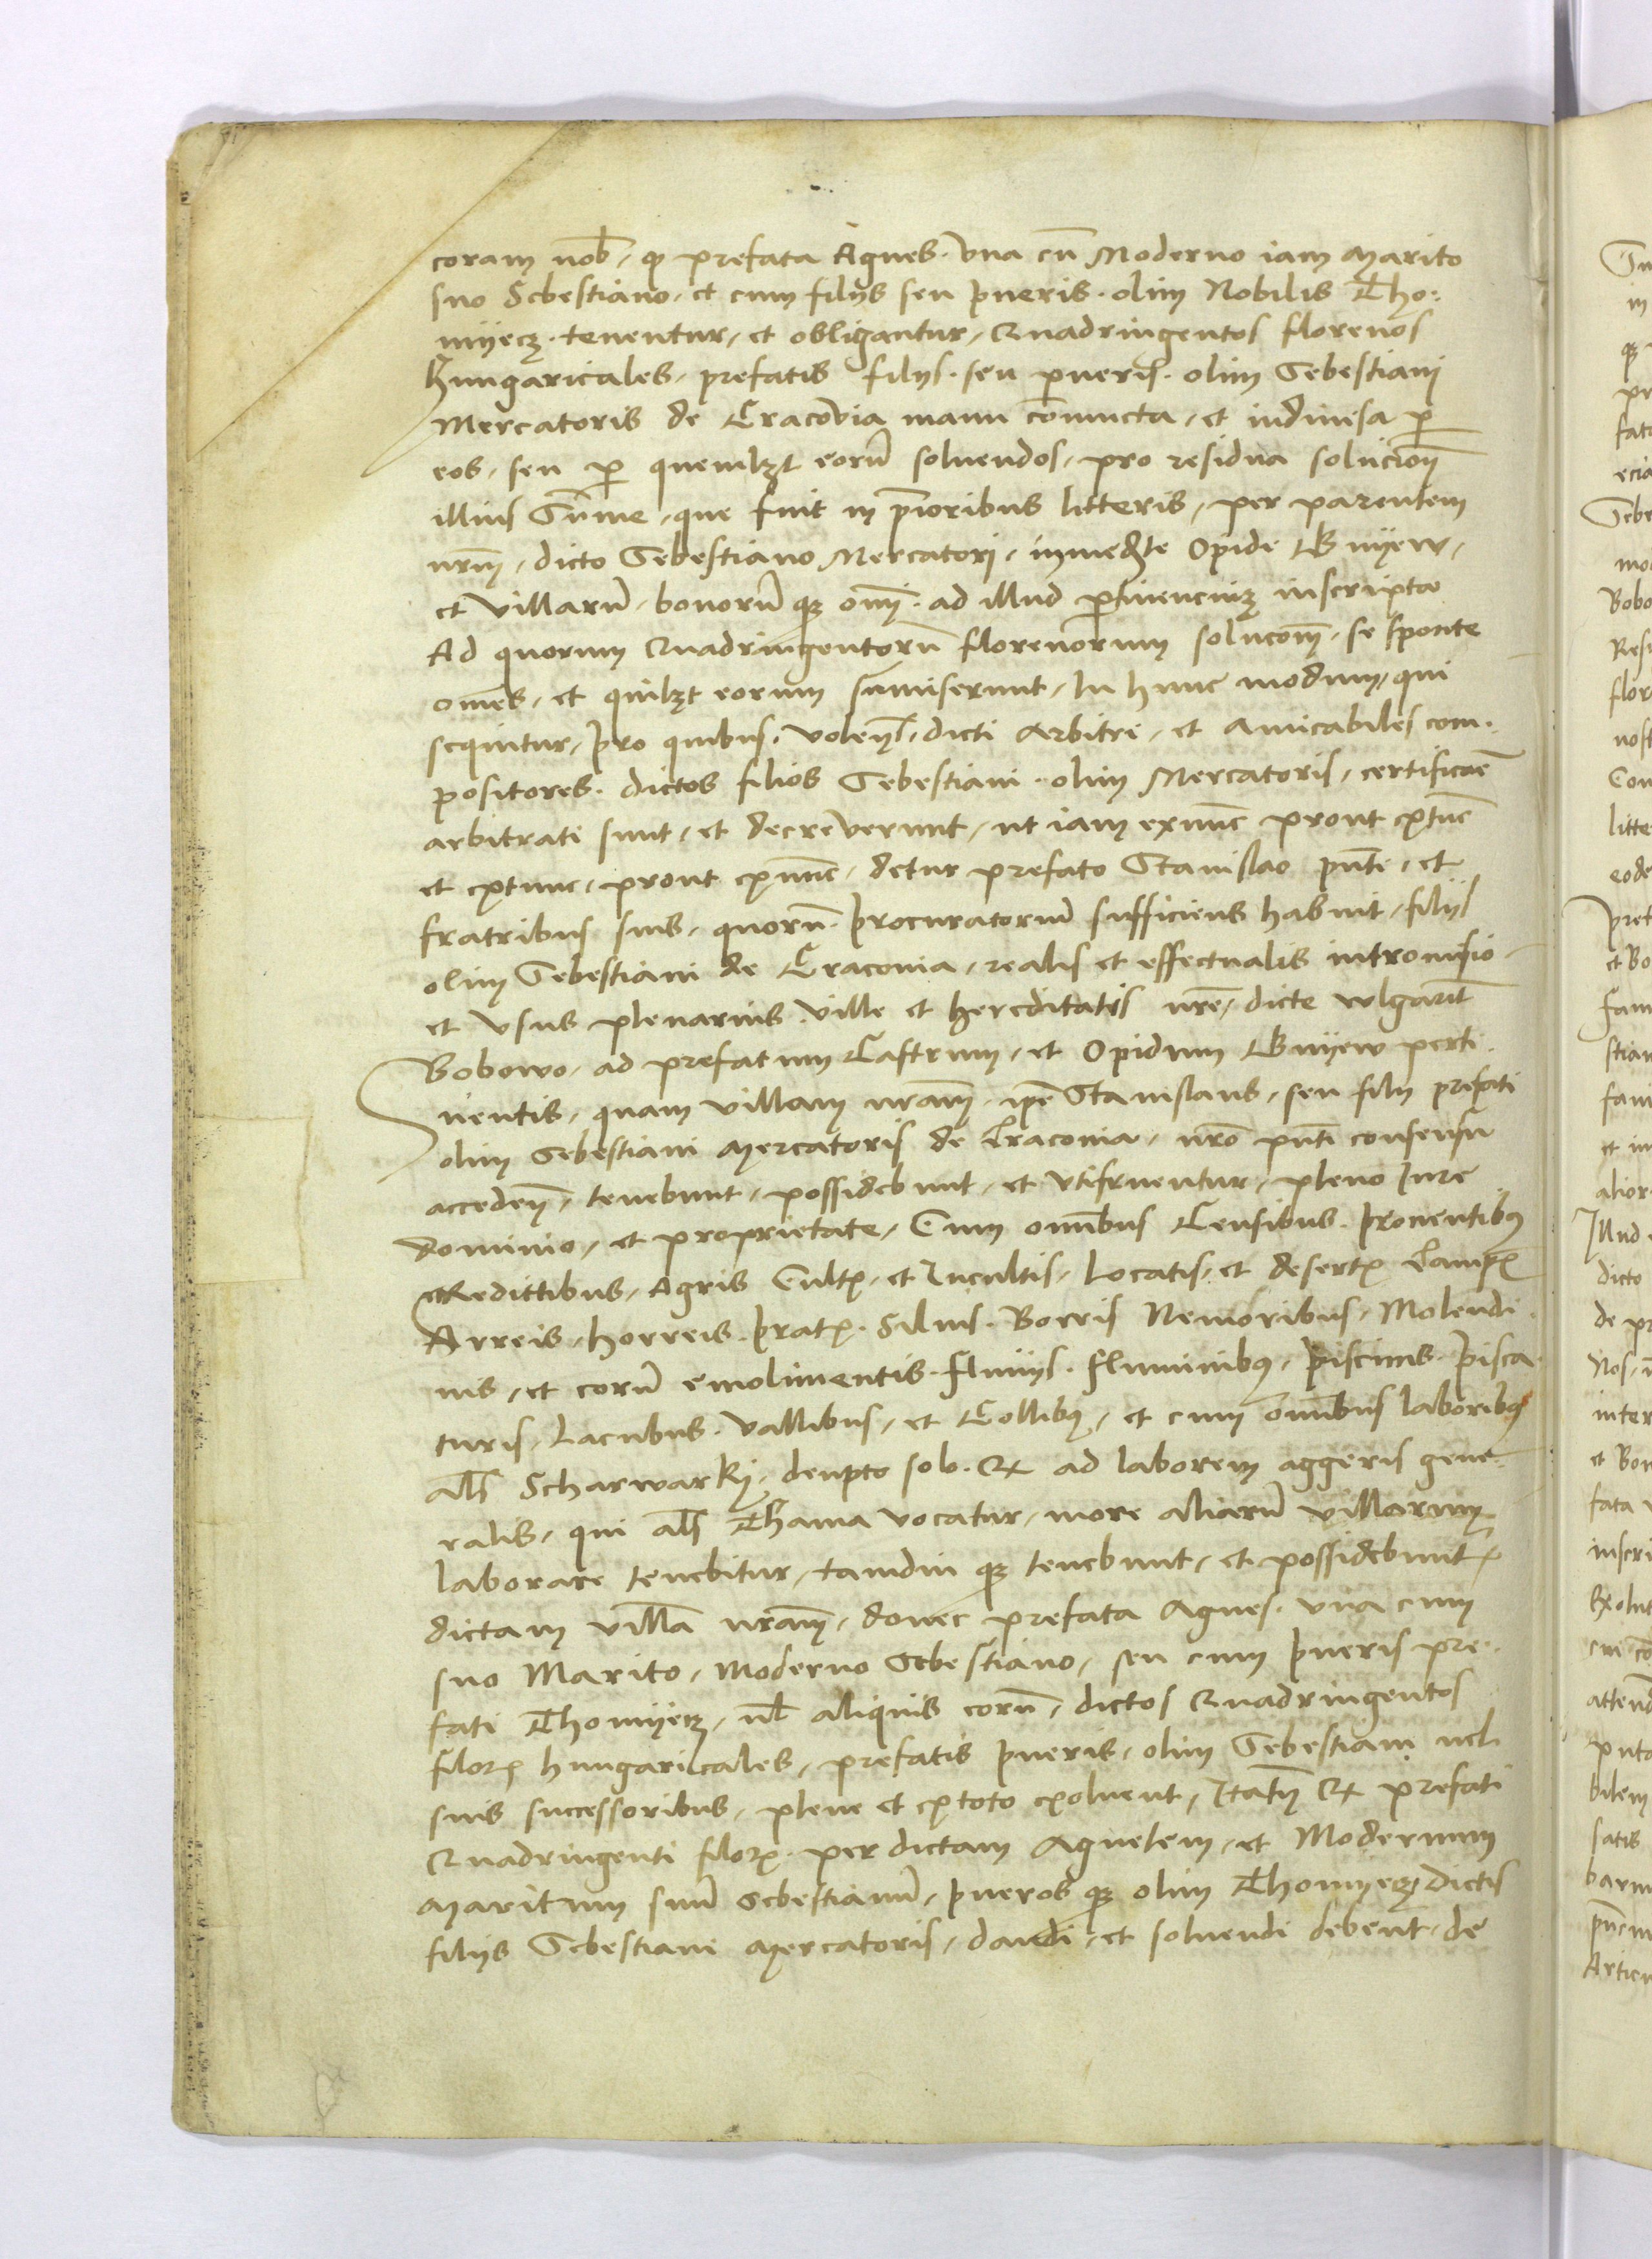 coram nob̄, ꝙ prefata Agnes. vna cū Moderno iam Marito
suo Sebestiano, et cum filijs seu pueris. olim Nobilis Tho:
myecz. tenentur, et obligantur, Quadringentos florenos
Hungaricales, prefatis filijs. seu pueris. olim Sebestiani
Mercatoris de Cracovia manu coniuncta, et indiuisa ꝑ
eos, seu ꝑ quemlꝫt eorū soluendos, pro residua soluciōn
illius Sūme, que fuit in prioribus litteris, per parentem
nr̄m, dicto Sebestiano Mercatori, in medte Opide Gnyew,
et villarū, bonorū qꝫ om̄. ad illud ꝑtinenciuꝫ inscripta
Ad quorum Quadringentorū florenorum solucom̄, se sponte
om̄es, et quilꝫt eorum sūmiserunt, In hunc modum, qui
sequitur, pro quibus, volen̄. dicti Arbitri, et Amicabiles com.
positores. dictos filios Sebestiani. olim Mercatoris, certificar̄e
arbitrati sunt, et decreverunt, ut iam exnunc prout extūc
et extunc, prout exnunc, detur prefato Stanislao pn̄ti, et
fratribus suis, quorū procuratoriū sufficiens habuit, filijs
olim Sebestiani de Craconia, realis et effectualis intromissio
et vsus plenarius. ville et hereditatis nr̄e, dicte wlgarit̄
Bobowo, ad prefatum Castrum, et Opidum Gnyew perti.
nentis, quam villam nr̄am, ip̄e Stanislaus, seu filij prefati
olim Sebestiani Mercatoris de Craconia, nr̄o pn̄ti consensu
acceden̄, tenebunt, possidebunt, et vtifruentur, pleno Iure
dominio, et proprietate, Cum omībus Censibus. prouentibꝰ
Redittibus, Agris Cultꝭ, et Incultis, Locatis, et desertꝭ Campꝭ
Arreis, horreis. pratꝭ. Siluis. Borris Nemoribus, Molendi.
nis, et eorū emolimentis. fluuijs. fluminibꝰ, piscinis. pisca.
turis, Lacubus. vallibus, et Collibꝰ, et cum omībus laboribꝰ
al̄s Scharwarkj, dempto solo. Qꝛ ad laborem aggeris gene.
ralis, qui al̄s Thama vocatur, more aliarū villarum
laborare tenebitur, tamdiu qꝫ tenebunt, et possidebunt,
dictam villā nr̄am, donec prefata Agnes. vna cum
suo Marito, Moderno Sebestiano, seu cum pueris pre.
fati Thomyecz, ul̄ aliquis eorū, dictos Quadringentos
florꝭ hungaricales, prefatis pueris, olim Sebestiani uel
suis successoribus, plene et extoto exoluent, Itatn̄ Qꝛ prefati
Quadringenti florꝭ. per dictam Agnetem, et Modernum
Maritum suū Sebestianū, pueros qꝫ olim Thomyecz dictis
filijs Sebestiani Mercatoris, dandi, et soluendi debent, de